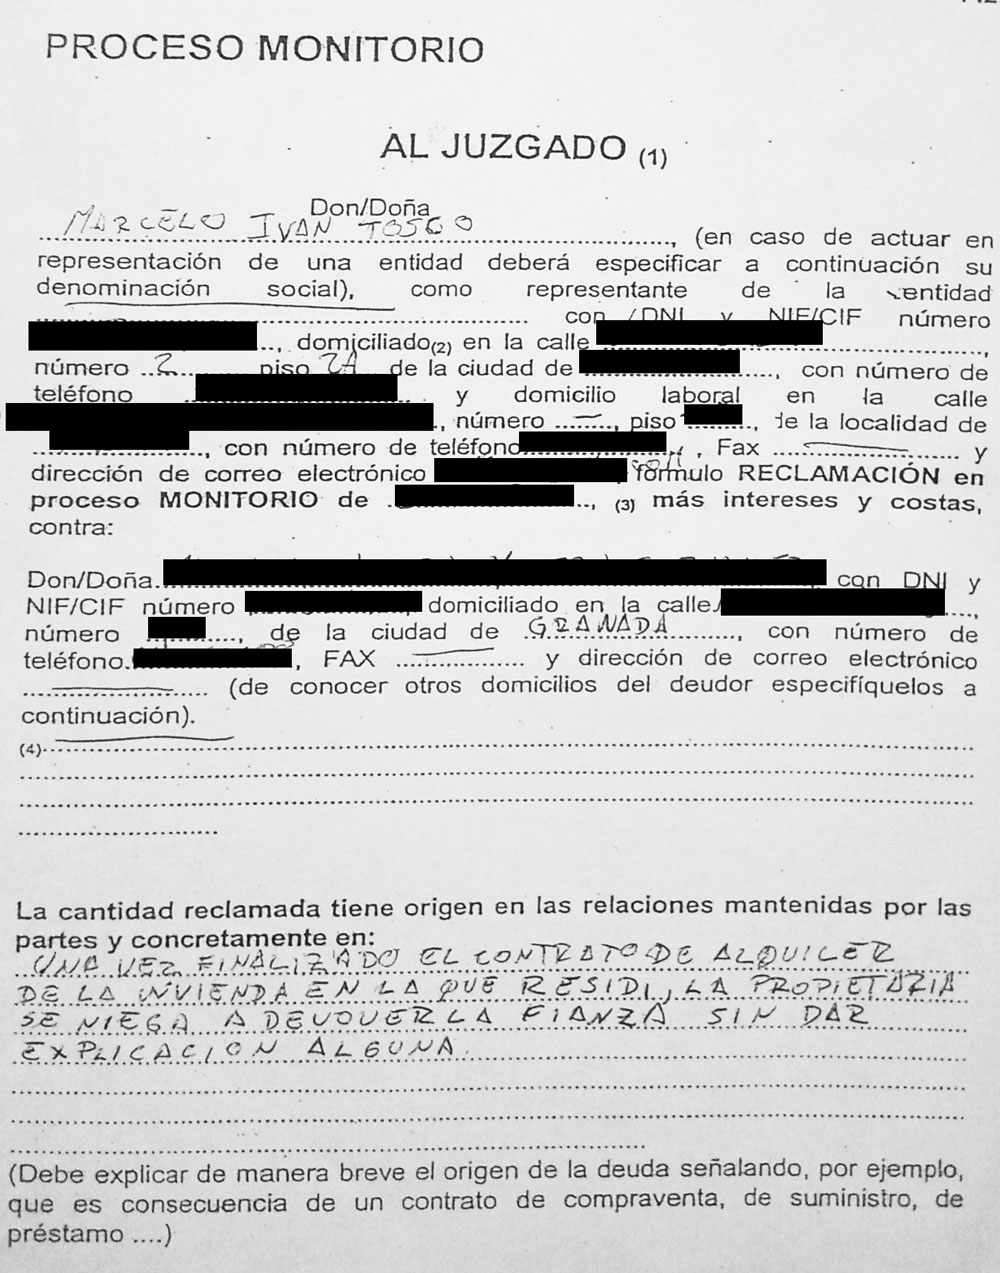 PROCESO MONITORIO
AL JUZGADO (1)
Don/Doña
MARCELO IVAN TOSCO
......................................................, (en caso de actuar en
representación de una entidad deberá especificar a continuación su
denominación social), como representante de la entidad
...................................................... con DNI y NIF/CIF número
.., domiciliado(2) en la calle ......,
número ..2...... piso 2A .. de la ciudad de ....., con número de
teléfono .. y domicilio laboral en la calle
., número ......., piso ......., de la localidad de
........, con número de teléfono ..., Fax .................. y
dirección de correo electrónico formulo RECLAMACIÓN en
proceso MONITORIO de ..., (3) más intereses y costas,
contra:
Don/Doña. con DNI y
NIF/CIF número domiciliado en la calle ....,
número ......, de la ciudad de ..GRANADA.........., con número de
teléfono. , FAX .................. y dirección de correo electrónico
.......................... (de conocer otros domicilios del deudor especifíquelos a
continuación).
(4)..........................................................................................
..........................................................................................
..........................................................................................
............................
La cantidad reclamada tiene origen en las relaciones mantenidas por las
partes y concretamente en:
UNA VEZ FINALIZADO EL CONTRATO DE ALQUILER
DE LA VIVIENDA EN LA QUE RESIDI, LA PROPIETARIA
SE NIEGA A DEVOLVER LA FIANZA SIN DAR
EXPLICACION ALGUNA.
..........................................................................................
..........................................................................................
..........................................................
(Debe explicar de manera breve el origen de la deuda señalando, por ejemplo,
que es consecuencia de un contrato de compraventa, de suministro, de
préstamo ....)